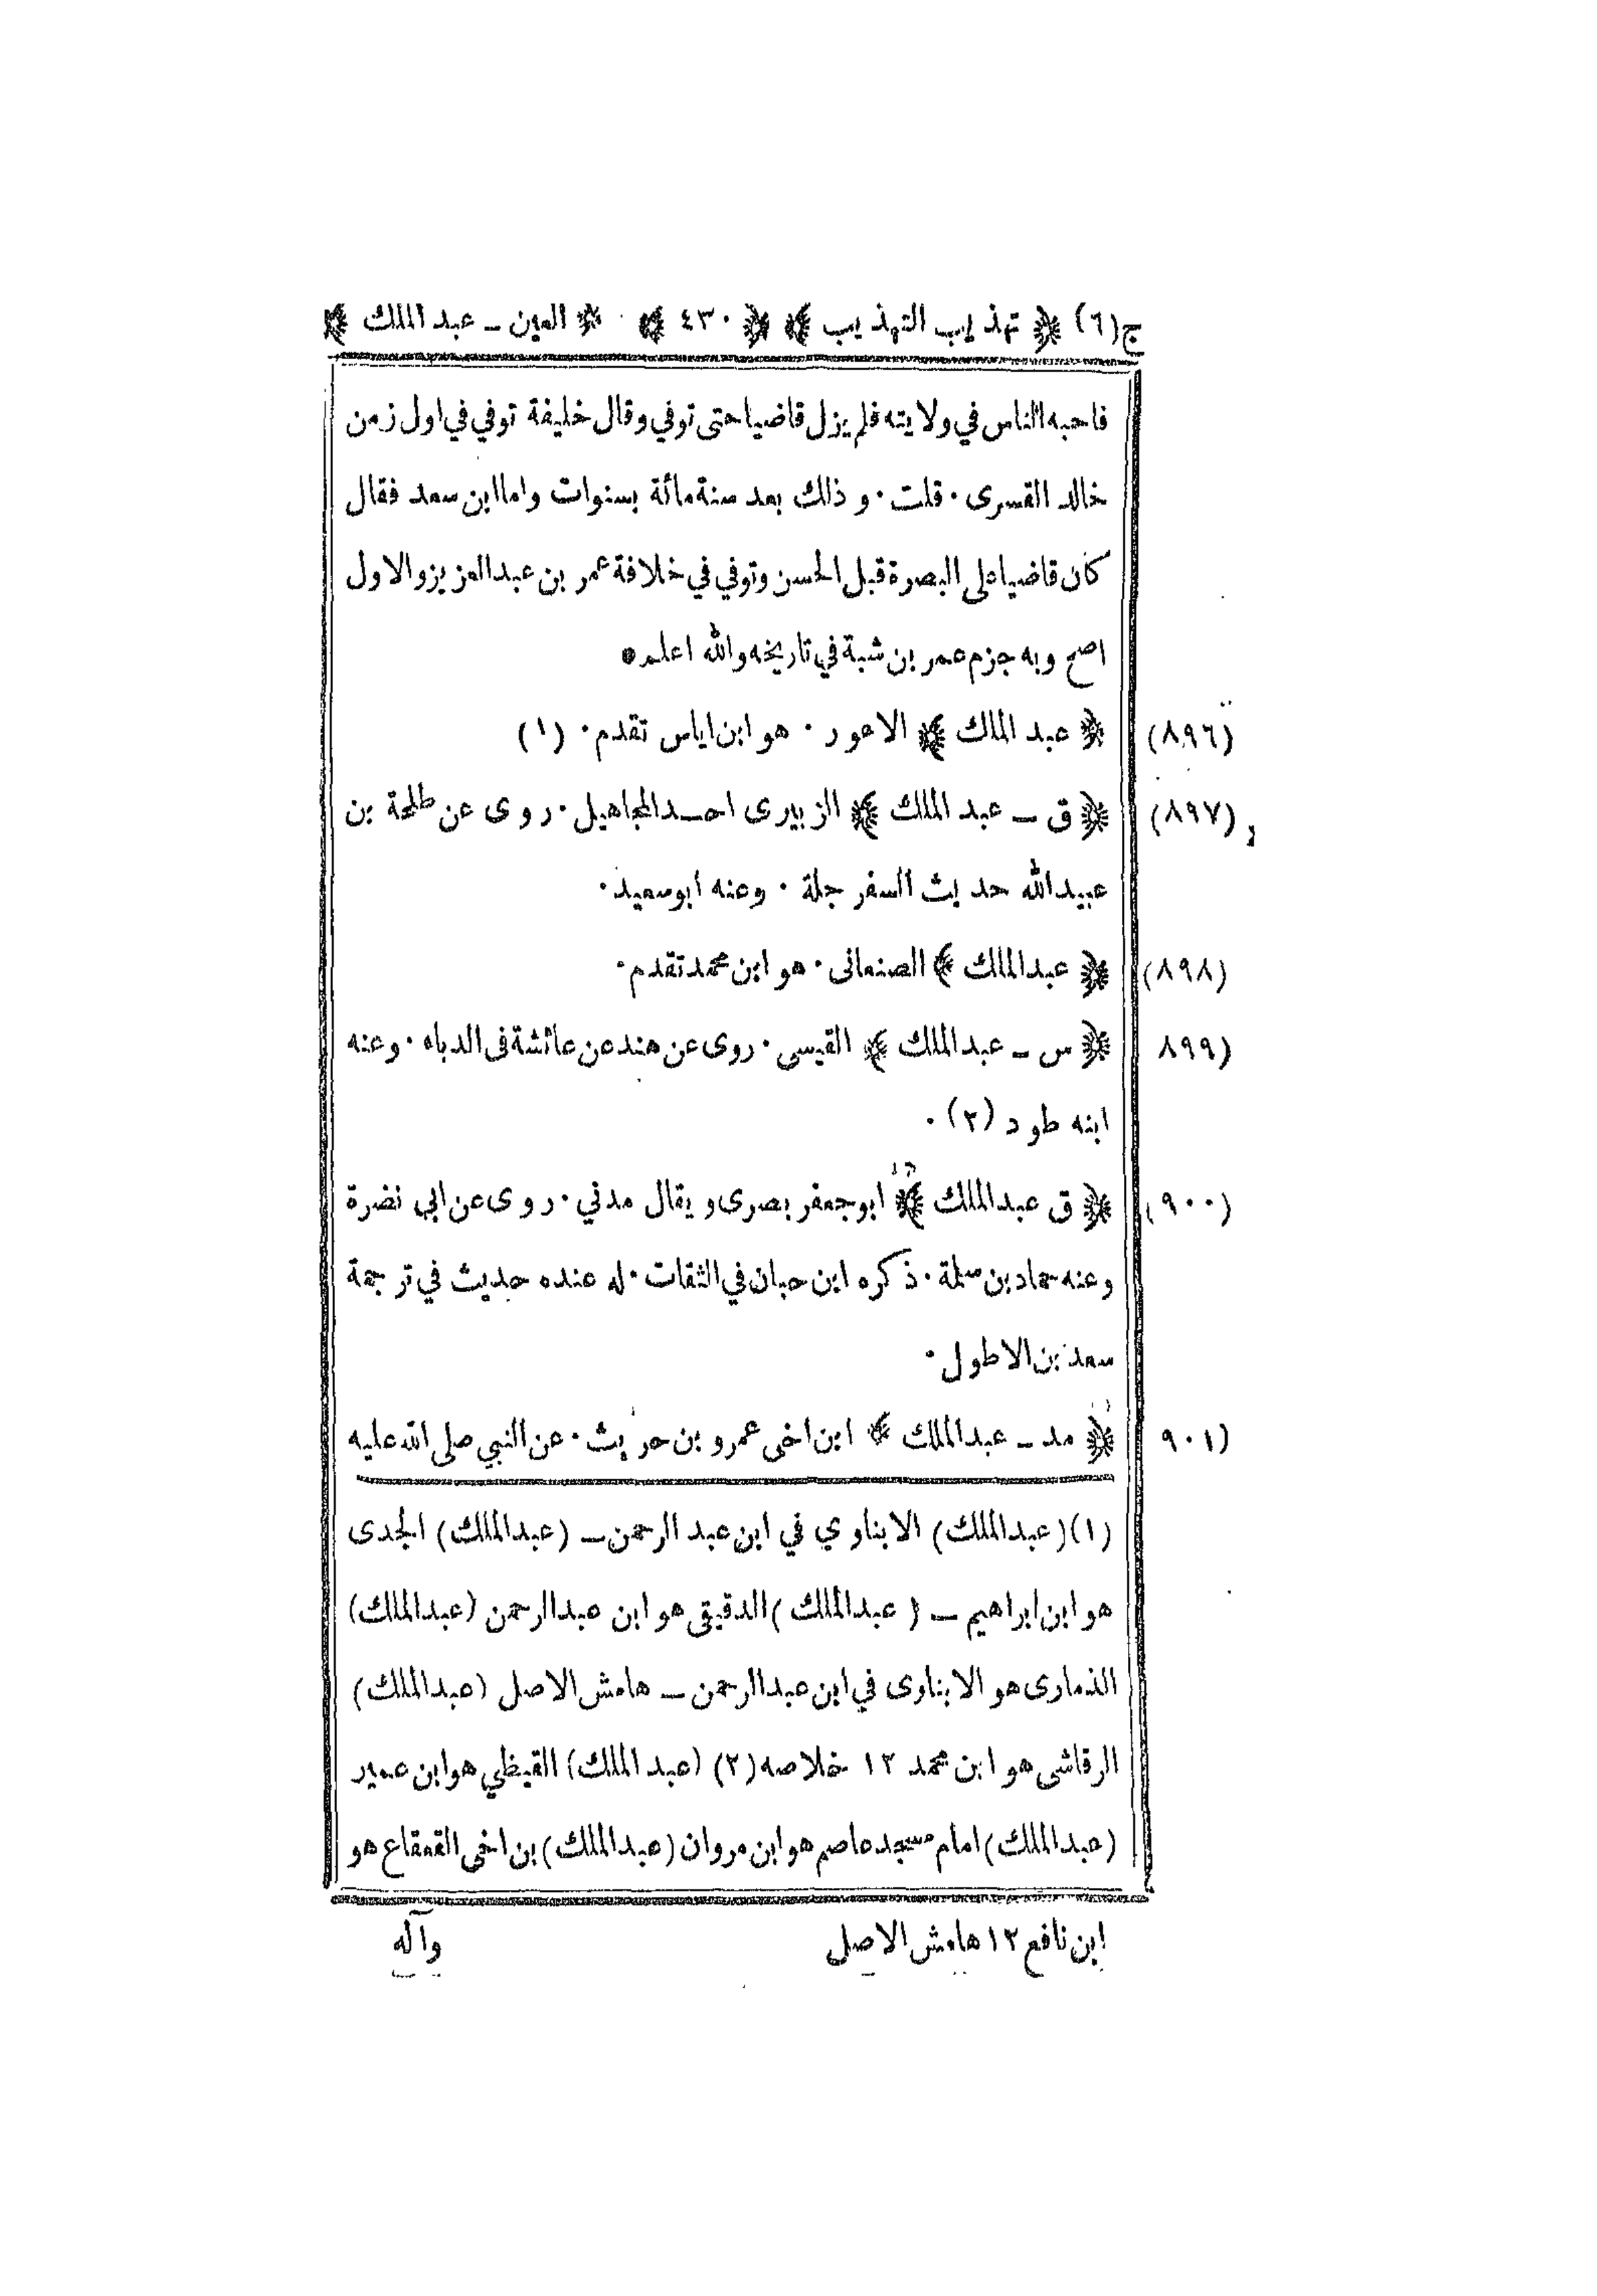 ج(٦) ﴿ تهذيب التهذيب ﴾ ﴿ ٤٣٠ ﴾ ﴿ العين ـ عبد الملك ﴾
فاحبه الناس في ولايته فلم يزل قاضيا حتى توفي وقال خليفة توفي في اول زمن
خالد القسرى ٠ قلت ٠ و ذلك بعد سنة مائة بسنوات واما ابن سعد فقال
كان قاضيا على البصرة قبل الحسن وتوفي في خلافة عمر بن عبد العزيز والاول
اصح وبه جزم عمر بن شبة في تاريخه والله اعلم ●
(٨٩٦) ﴿ عبد الملك ﴾ الاعور ٠ هو ابن اياس تقدم ٠ (١)
(٨٩٧) ﴿ ق ـ عبد الملك ﴾ الزبيرى احد المجاهيل ٠ روى عن طلحة بن
عبيد الله حديث السفر جلة ٠ وعنه ابو سعيد ٠
(٨٩٨) ﴿ عبد الملك ﴾ الصنعانى ٠ هو ابن محمد تقدم ٠
(٨٩٩ ﴿ س ـ عبد الملك ﴾ القيسى ٠ روى عن هند عن عائشة فى الدباء ٠ وعنه
ابنه طود (٢) ٠
(٩٠٠) ﴿ ق عبد الملك ﴾ ابو جعفر بصرى و يقال مدني ٠ روى عن ابي نضرة
وعنه حماد بن سلمة ٠ ذكره ابن حبان في الثقات ٠ له عنده حديث في ترجمة
سعد بن الاطول ٠
(٩٠١ ﴿ مد ـ عبد الملك ﴾ ابن اخى عمرو بن حريث ٠ عن النبي صلى الله عليه
(١) (عبد الملك) الابناوي في ابن عبد الرحمن ـ (عبد الملك) الجدى
هو ابن ابراهيم ـ (عبد الملك) الدقيقى هو ابن عبد الرحمن (عبد الملك)
الذمارى هو الابناوى في ابن عبد الرحمن ـ هامش الاصل (عبد الملك)
الرقاشى هو ابن محمد ١٢ خلاصه (٢) (عبد الملك) القيظي هو ابن عمير
(عبد الملك) امام مسجد عاصم هو ابن مروان (عبد الملك) بن اخى القعقاع هو
ابن نافع ١٢ هامش الاصل
وآله